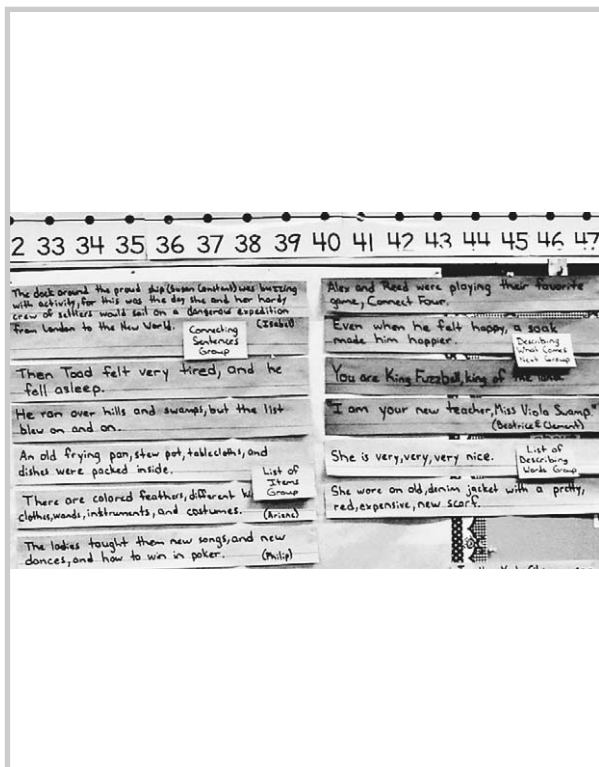 2 33 34 35 36 37 38 39 40 41 42 43 44 45 46 47
The dock around the proud ship (Susan Constant) was buzzing
with activity, for this was the day she and her hardy
crew of settlers would sail on a dangerous expedition
from London to the New World. (Isabel)
Connecting
Sentences
Group
Then Toad felt very tired, and he
fell asleep.
He ran over hills and swamps, but the list
blew on and on.
An old frying pan, stew pot, tablecloths, and
dishes were packed inside.
List of
Items
Group
There are colored feathers, different
clothes, wands, instruments, and costumes. (Ariane)
The ladies taught them new songs, and new
dances, and how to win in poker. (Philip)
Alex and Reed were playing their favorite
game, Connect Four.
Even when he felt happy, a soak
made him happier.
Describing
What Comes
Next Group
You are King Fuzzball, king of the
"I am your new teacher, Miss Viola Swamp."
(Beatrice & Clement)
She is very, very, very nice.
List of
Describing
Words Group
She wore an old, denim jacket with a pretty,
red, expensive, new scarf.